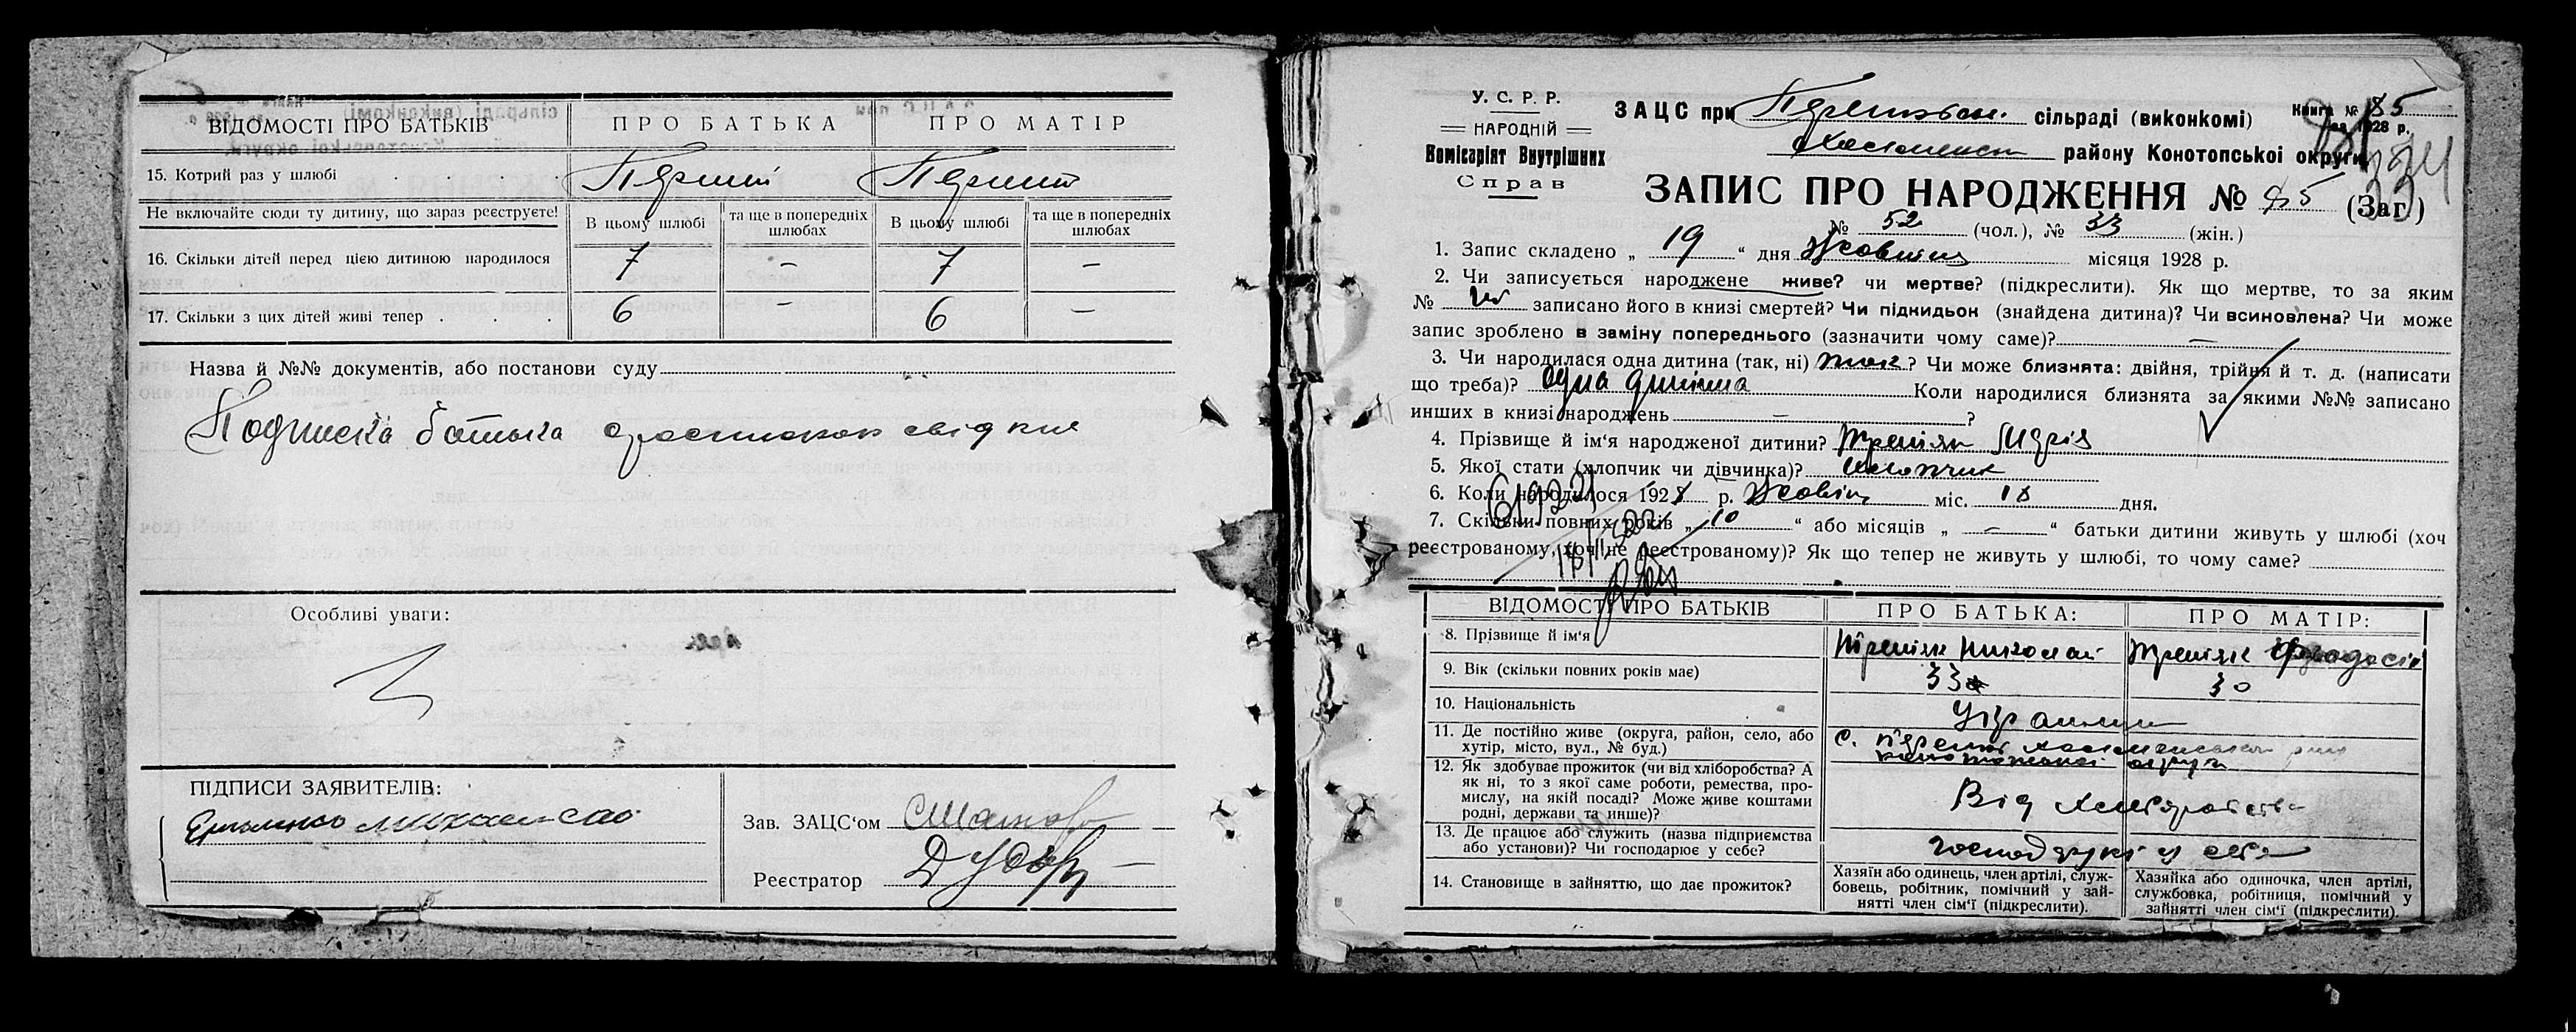 ВІДОМОСТІ ПРО БАТЬКІВ ПРО БАТЬКА ПРО МАТІР
15. Котрий раз у шлюбі . . . . Перший Перший
Не включайте сюди ту дитину, що зараз реєструєте! В цьому шлюбі та ще в попередніх шлюбах В цьому шлюбі та ще в попередніх шлюбах
16. Скільки дітей перед цією дитиною народилося 7 – 7 –
17. Скільки з цих дітей живі тепер . . . 6 – 6 –
Назва й №№ документів, або постанови суду
Подписка батька
Особливі уваги:
ПІДПИСИ ЗАЯВИТЕЛІВ:
Зав. ЗАЦС‘ом
Реєстратор
У. С. Р. Р.
НАРОДНІЙ
Комісаріят Внутрішніх
Справ
ЗАЦС при сільраді (виконкомі)
району Конотопської округи
Книга № 85
на 1928 р.
ЗАПИС ПРО НАРОДЖЕННЯ № 85 (Заг.)
№ 52 (чол.), № 33 (жін.)
1. Запис складено „ 19 “ дня Жовтня місяця 1928 р.
2. Чи записується народжене живе? чи мертве? (підкреслити). Як що мертве, то за яким
№ записано його в книзі смертей? Чи підкидьок (знайдена дитина)? Чи всиновлена? Чи може
запис зроблено в заміну попереднього (зазначити чому саме)? –
3. Чи народилася одна дитина (так, ні) так? Чи може близнята: двійня, трійня й т. д. (написати
що треба)? одна дитина Коли народилися близнята за якими №№ записано
инших в книзі народжень – ?
4. Прізвище й ім‘я народженої дитини? Третяк
5. Якої стати (хлопчик чи дівчинка)? хлопчик
6. Коли народилося 1928 р. Жовтня міс. 18 дня.
7. Скільки повних років „ 10 “ або місяців „ – “ батьки дитини живуть у шлюбі (хоч
реєстрованому, хоч не реєстрованому)? Як що тепер не живуть у шлюбі, то чому саме?
ВІДОМОСТІ ПРО БАТЬКІВ ПРО БАТЬКА: ПРО МАТІР:
8. Прізвище й ім‘я Третяк Николай Третяк Феодосія
9. Вік (скільки повних років має) 33 30
10. Національність
11. Де постійно живе (округа, район, село, або
хутір, місто, вул., № буд.)
12. Як здобуває прожиток (чи від хліборобства? А
як ні, то з якої саме роботи, ремества, про-
мислу, на якій посаді? Може живе коштами
родні, держави та инше)?
Від хліборобства
13. Де працює або служить (назва підприємства
або установи)? Чи господарює у себе?
господарює у себе
14. Становище в зайняттю, що дає прожиток?
Хазяїн або одинець, член артілі, служ-
бовець, робітник, помічний у зай-
нятті член сім‘ї (підкреслити).
Хазяйка або одиночка, член артілі,
службовка, робітниця, помічний у
зайнятті член сім‘ї (підкреслити).